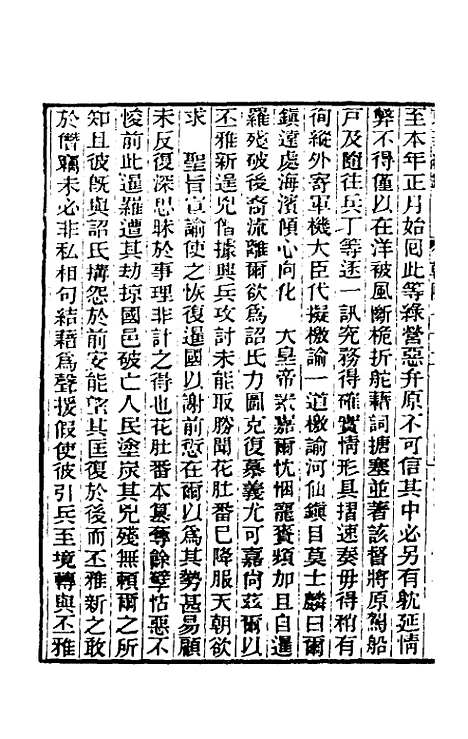 至本年正月始回此等綠營惡弁原不可信其中必另有躭延情
弊不得僅以在洋被風斷桅折舵藉詞搪塞並著該督將原駕船
戸及隨往兵丁等逐一訊究務得確實情形具摺速奏毋得稍有
徇縱外寄軍機大臣代擬檄諭一道檄諭河仙鎭目莫士麟曰爾
鎭遠處海濱傾心向化　大皇帝柔嘉爾忱悃寵賚頻加且自暹
羅殘破後裔流離爾欲爲詔氏力圖克復慕義尤可嘉尚茲爾以
丕雅新逞兇僭據興兵攻討未能取勝聞花肚番已降服天朝欲
求　聖旨宣諭使之恢復暹國以謝前愆在爾以爲其勢甚易顧
未反復深思昧於事理非計之得也花肚番本篡奪餘孽怙惡不
悛前此暹羅遭其劫掠國邑破亡人民塗炭其兇殘無賴爾之所
知且彼旣與詔氏搆怨於前安能望其匡復於後而丕雅新之敢
於僭竊未必非私相句結藉爲聲援假使彼引兵至境轉與丕雅